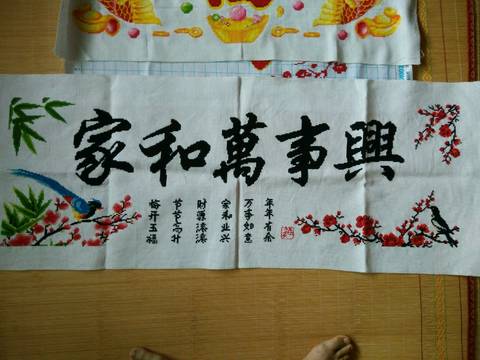 家和萬事興
年年有余
万事如意
家和业兴
财源滚滚
节节高升
梅开五福